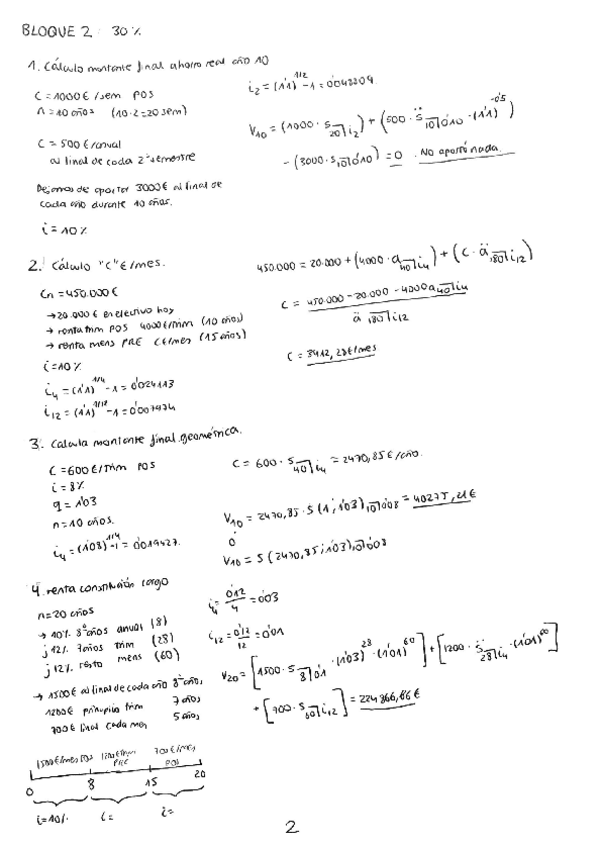 BLOQUE 2: 30%
1. Cálculo montante final ahorro real año 10
C = 1000€/sem POS
n = 10 años (10·2 = 20 sem)
C = 500€/anual
al final de cada 2º semestre
Dejamos de aportar 3000€ al final de
cada año durante 10 años.
i = 10%
i₂ = (1'1)^1/2 - 1 = 0'048809
V10 = (1000 · s20┐i₂) + (500 · s̈10┐0'10 · (1'1)^-0'5)
- (3000 · s10┐0'10) = 0 . No aportó nada.
2. Cálculo "C" €/mes.
Cn = 450.000€
→ 20.000€ en efectivo hoy
→ renta trim POS 4000€/trim (10 años)
→ renta mens PRE C€/mes (15 años)
i = 10%
i₄ = (1'1)^1/4 - 1 = 0'024113
i12 = (1'1)^1/12 - 1 = 0'007974
450.000 = 20.000 + (4000 · a40┐i₄) + (C · ä180┐i12)
C = 450.000 - 20.000 - 4000 a40┐i₄
ä180┐i12
C = 3412,28€/mes
3. Calcula montante final geométrica.
C = 600€/trim POS
i = 8%
q = 1'03
n = 10 años.
i₄ = (1'08)^1/4 - 1 = 0'019427.
C = 600 · s40┐i₄ = 2470,85€/año.
V10 = 2470,85 · S(1; 1'03)10┐0'08 = 40275,21€
o
V10 = S(2470,85; 1'03)10┐0'08
4. renta constitución cargo
n = 20 años
→ 10% 8 años anual (8)
j 12% 7 años trim (28)
j 12% resto mens (60)
→ 1500€ al final de cada año 8 años
1200€ principio trim 7 años
700€ final cada mes 5 años
i₄ = 0'12/4 = 0'03
i12 = 0'12/12 = 0'01
V20 = [1500 · s8┐0'1 · (1'03)^28 · (1'01)^60] + [1200 · s̈28┐i₄ · (1'01)^60]
+ [700 · s60┐i12] = 224866,86€
1500€/mes POS 1200€/trim PRE 700€/mes POS
0 8 15 20
i = 10% i = i =
2